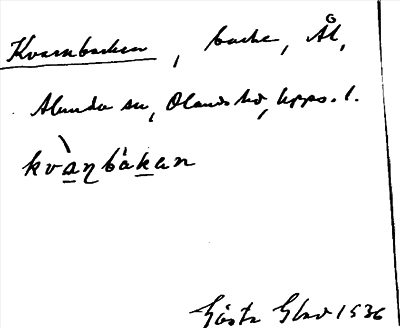 Kvarnbacken, backe, Ål,
Alunda sn, Olands hd, Upps. l.
kvànbákan
Gösta Glad 1936